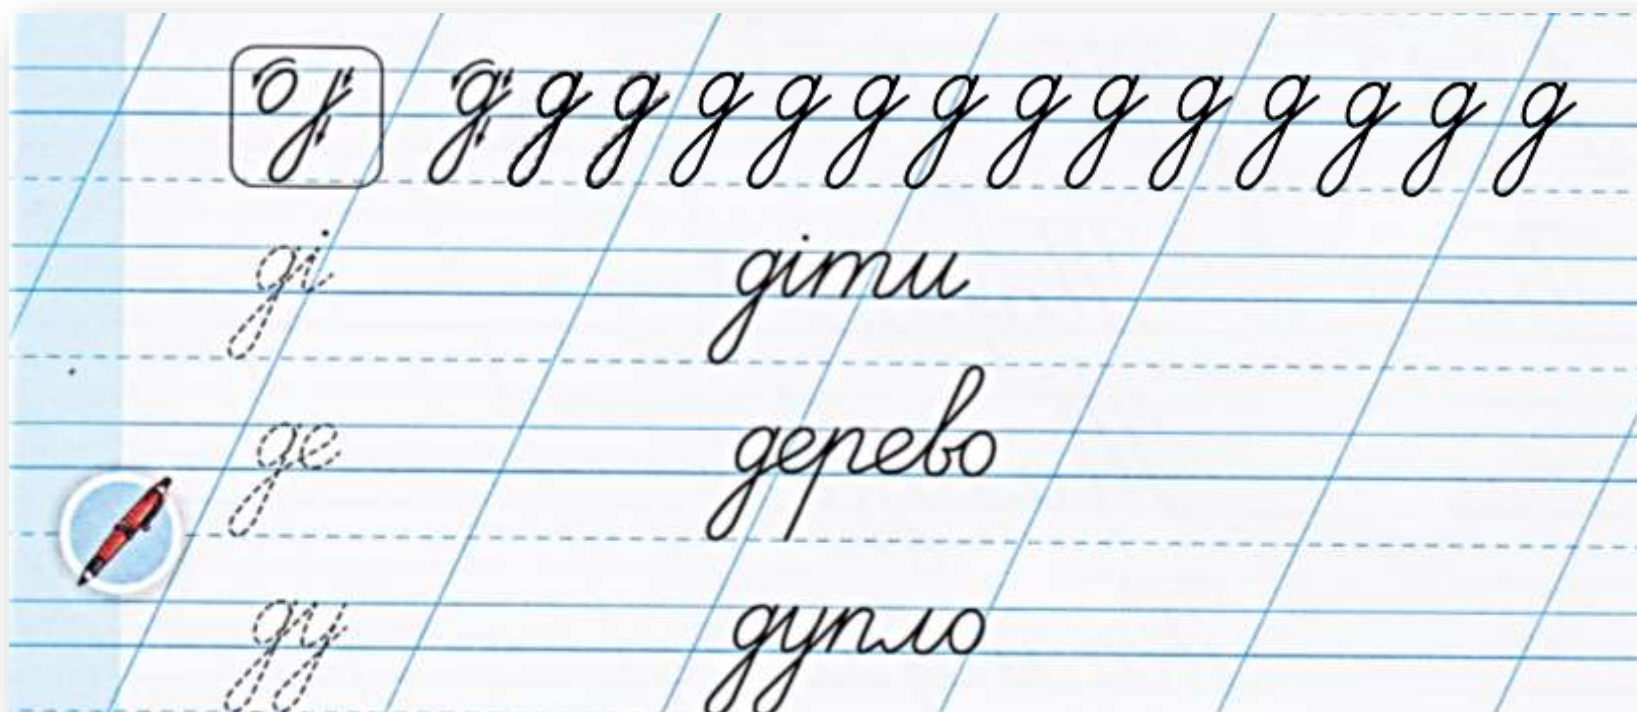 д д д д д д д д д д д д д д
ді діти
де дерево
ду дупло